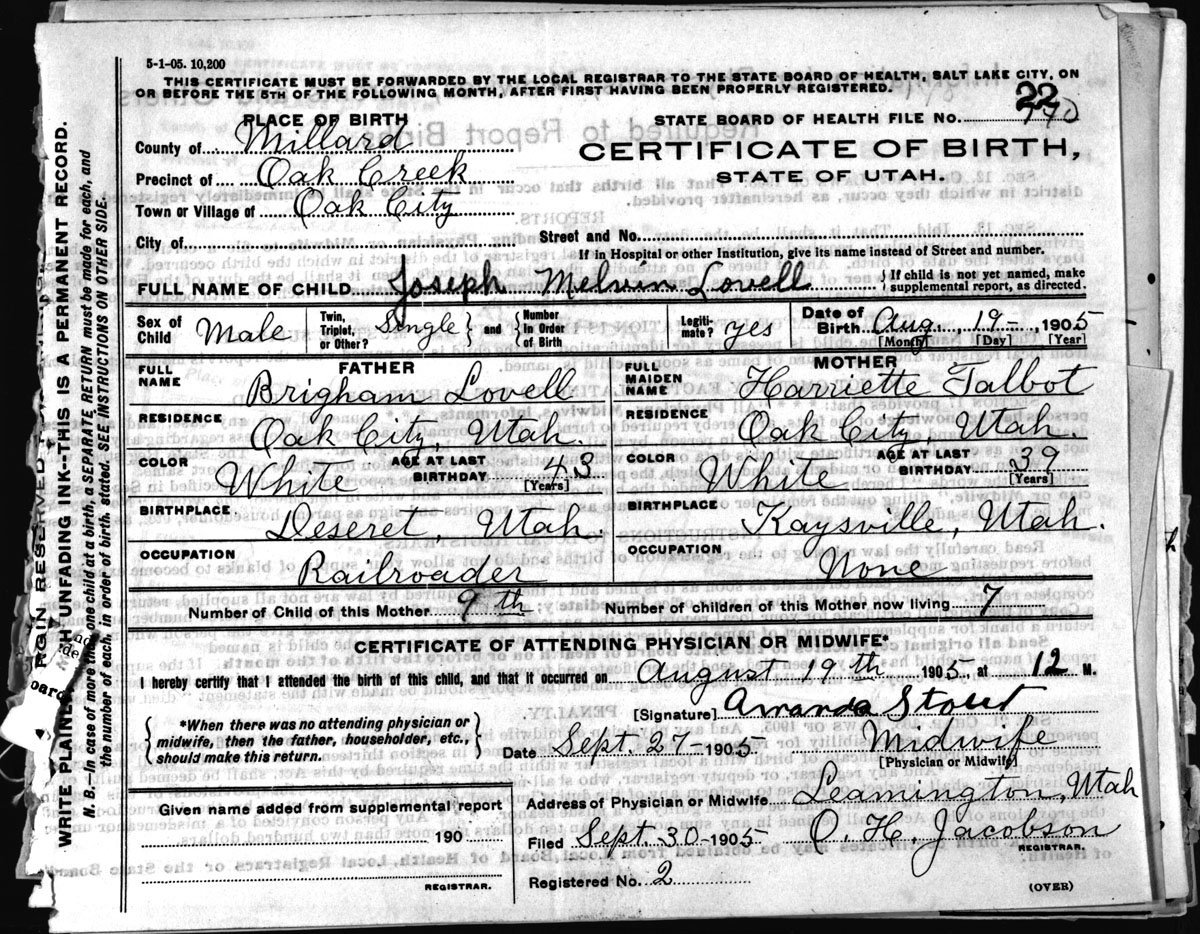 5-1-05. 10,200
THIS CERTIFICATE MUST BE FORWARDED BY THE LOCAL REGISTRAR TO THE STATE BOARD OF HEALTH, SALT LAKE CITY, ON
OR BEFORE THE 5TH OF THE FOLLOWING MONTH, AFTER FIRST HAVING BEEN PROPERLY REGISTERED.
22
PLACE OF BIRTH
STATE BOARD OF HEALTH FILE No. 770
County of Millard
CERTIFICATE OF BIRTH,
Precinct of Oak Creek
STATE OF UTAH.
Town or Village of Oak City
City of
Street and No.
If in Hospital or other Institution, give its name instead of Street and number.
FULL NAME OF CHILD Joseph Melvin Lovell
{ If child is not yet named, make
supplemental report, as directed.
Sex of Child Male
Twin, Triplet, or Other? Single } and { Number in Order of Birth
Legiti-mate? yes
Date of Birth Aug. 19- 1905
[Month] [Day] [Year]
FATHER
FULL NAME Brigham Lovell
RESIDENCE Oak City, Utah.
COLOR White AGE AT LAST BIRTHDAY 43 [Years]
BIRTHPLACE Deseret, Utah.
OCCUPATION Railroader
MOTHER
FULL MAIDEN NAME Harriette Talbot
RESIDENCE Oak City, Utah.
COLOR White AGE AT LAST BIRTHDAY 39 [Years]
BIRTHPLACE Kaysville, Utah.
OCCUPATION None
Number of Child of this Mother 9th
Number of children of this Mother now living 7
CERTIFICATE OF ATTENDING PHYSICIAN OR MIDWIFE*
I hereby certify that I attended the birth of this child, and that it occurred on August 19th 1905 at 12 M.
[Signature] Amanda Stout
{ *When there was no attending physician or
midwife, then the father, householder, etc.,
should make this return. }
Date Sept. 27- 1905. Midwife
[Physician or Midwife]
Given name added from supplemental report
190
REGISTRAR.
Address of Physician or Midwife Leamington, Utah
Filed Sept. 30- 1905 O. H. Jacobson
REGISTRAR.
Registered No. 2
(OVER)
WRITE PLAINLY WITH UNFADING INK—THIS IS A PERMANENT RECORD.
N. B.—In case of more than one child at a birth, a SEPARATE RETURN must be made for each, and
the number of each, in order of birth, stated. SEE INSTRUCTIONS ON OTHER SIDE.